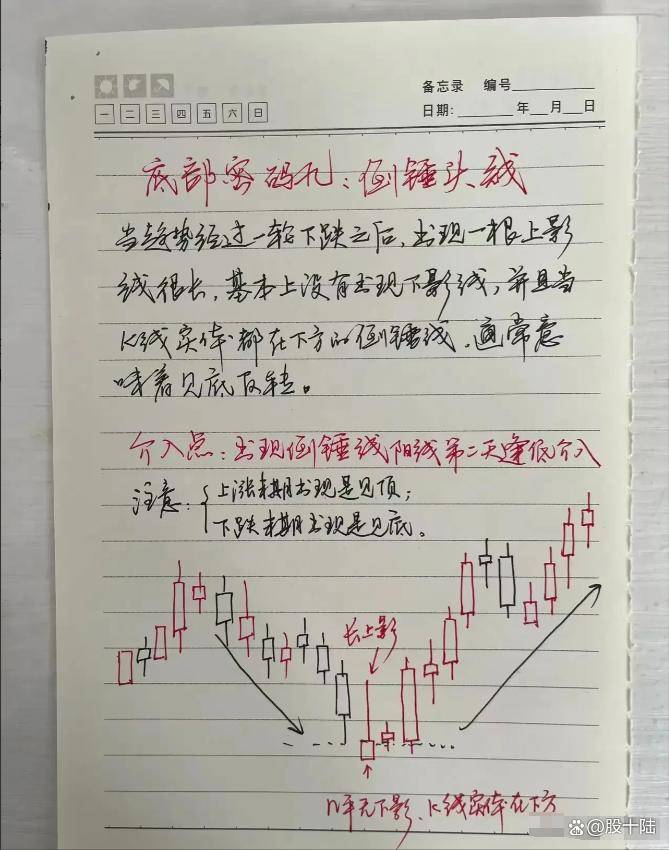 备忘录 编号
一 二 三 四 五 六 日
日期: 年 月 日
底部密码礼：倒锤头线
当趋势经过一轮下跌之后，出现一根上影
线很长，基本上没有出现下影线，并且当
K线实体都在下方的倒锤线，通常意
味着见底反转。
介入点：出现倒锤线阳线第二天逢低介入
注意：上涨末期出现是见顶；
下跌末期出现是见底。
长上影
几乎无下影、K线实体在下方
@股十陆